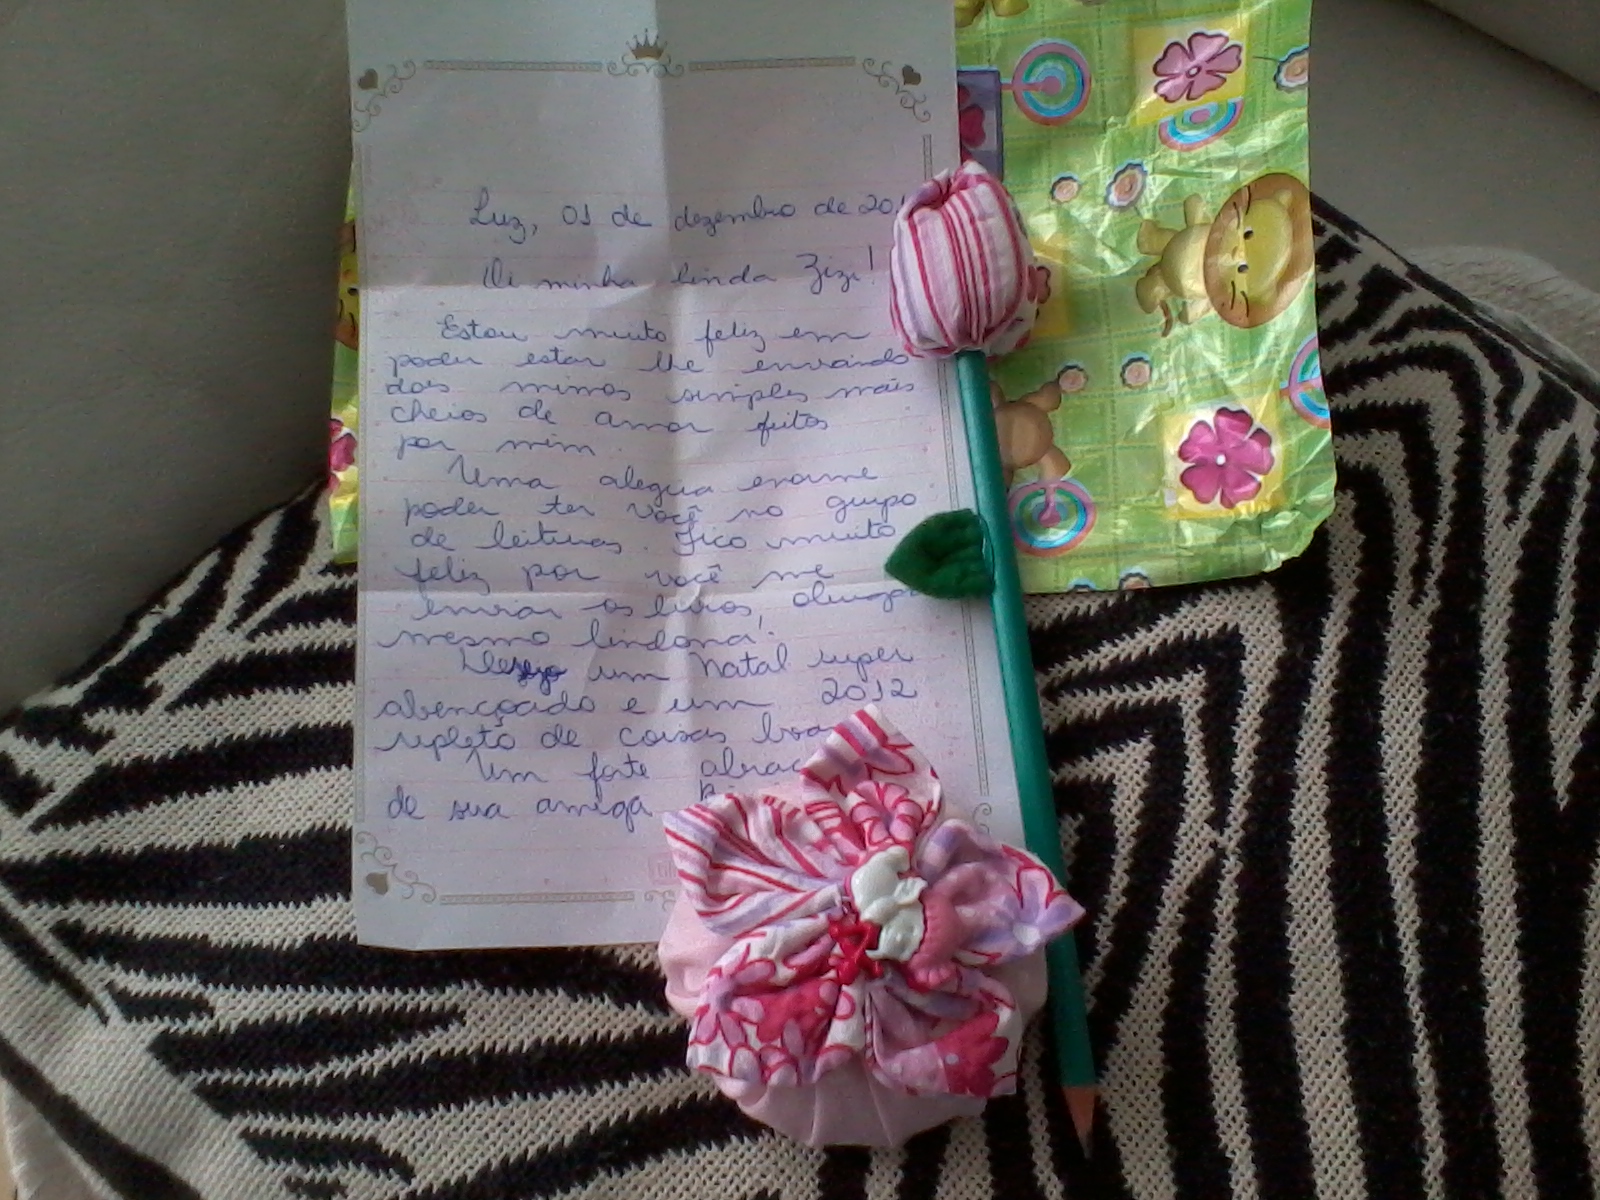 Luz, 01 de dezembro de 201
Oi minha linda Zizi!
Estou muito feliz em
poder estar lhe enviando
dois mimos simples mais
cheios de amor feitos
por mim.
Uma alegria enorme
poder ter você no grupo
de leituras. Fico muito
feliz por você me
enviar os livros obriga
mesmo lindona!
um Natal super
abençoado e um 2012
repleto de coisas boa
Um forte abraç
de sua amiga